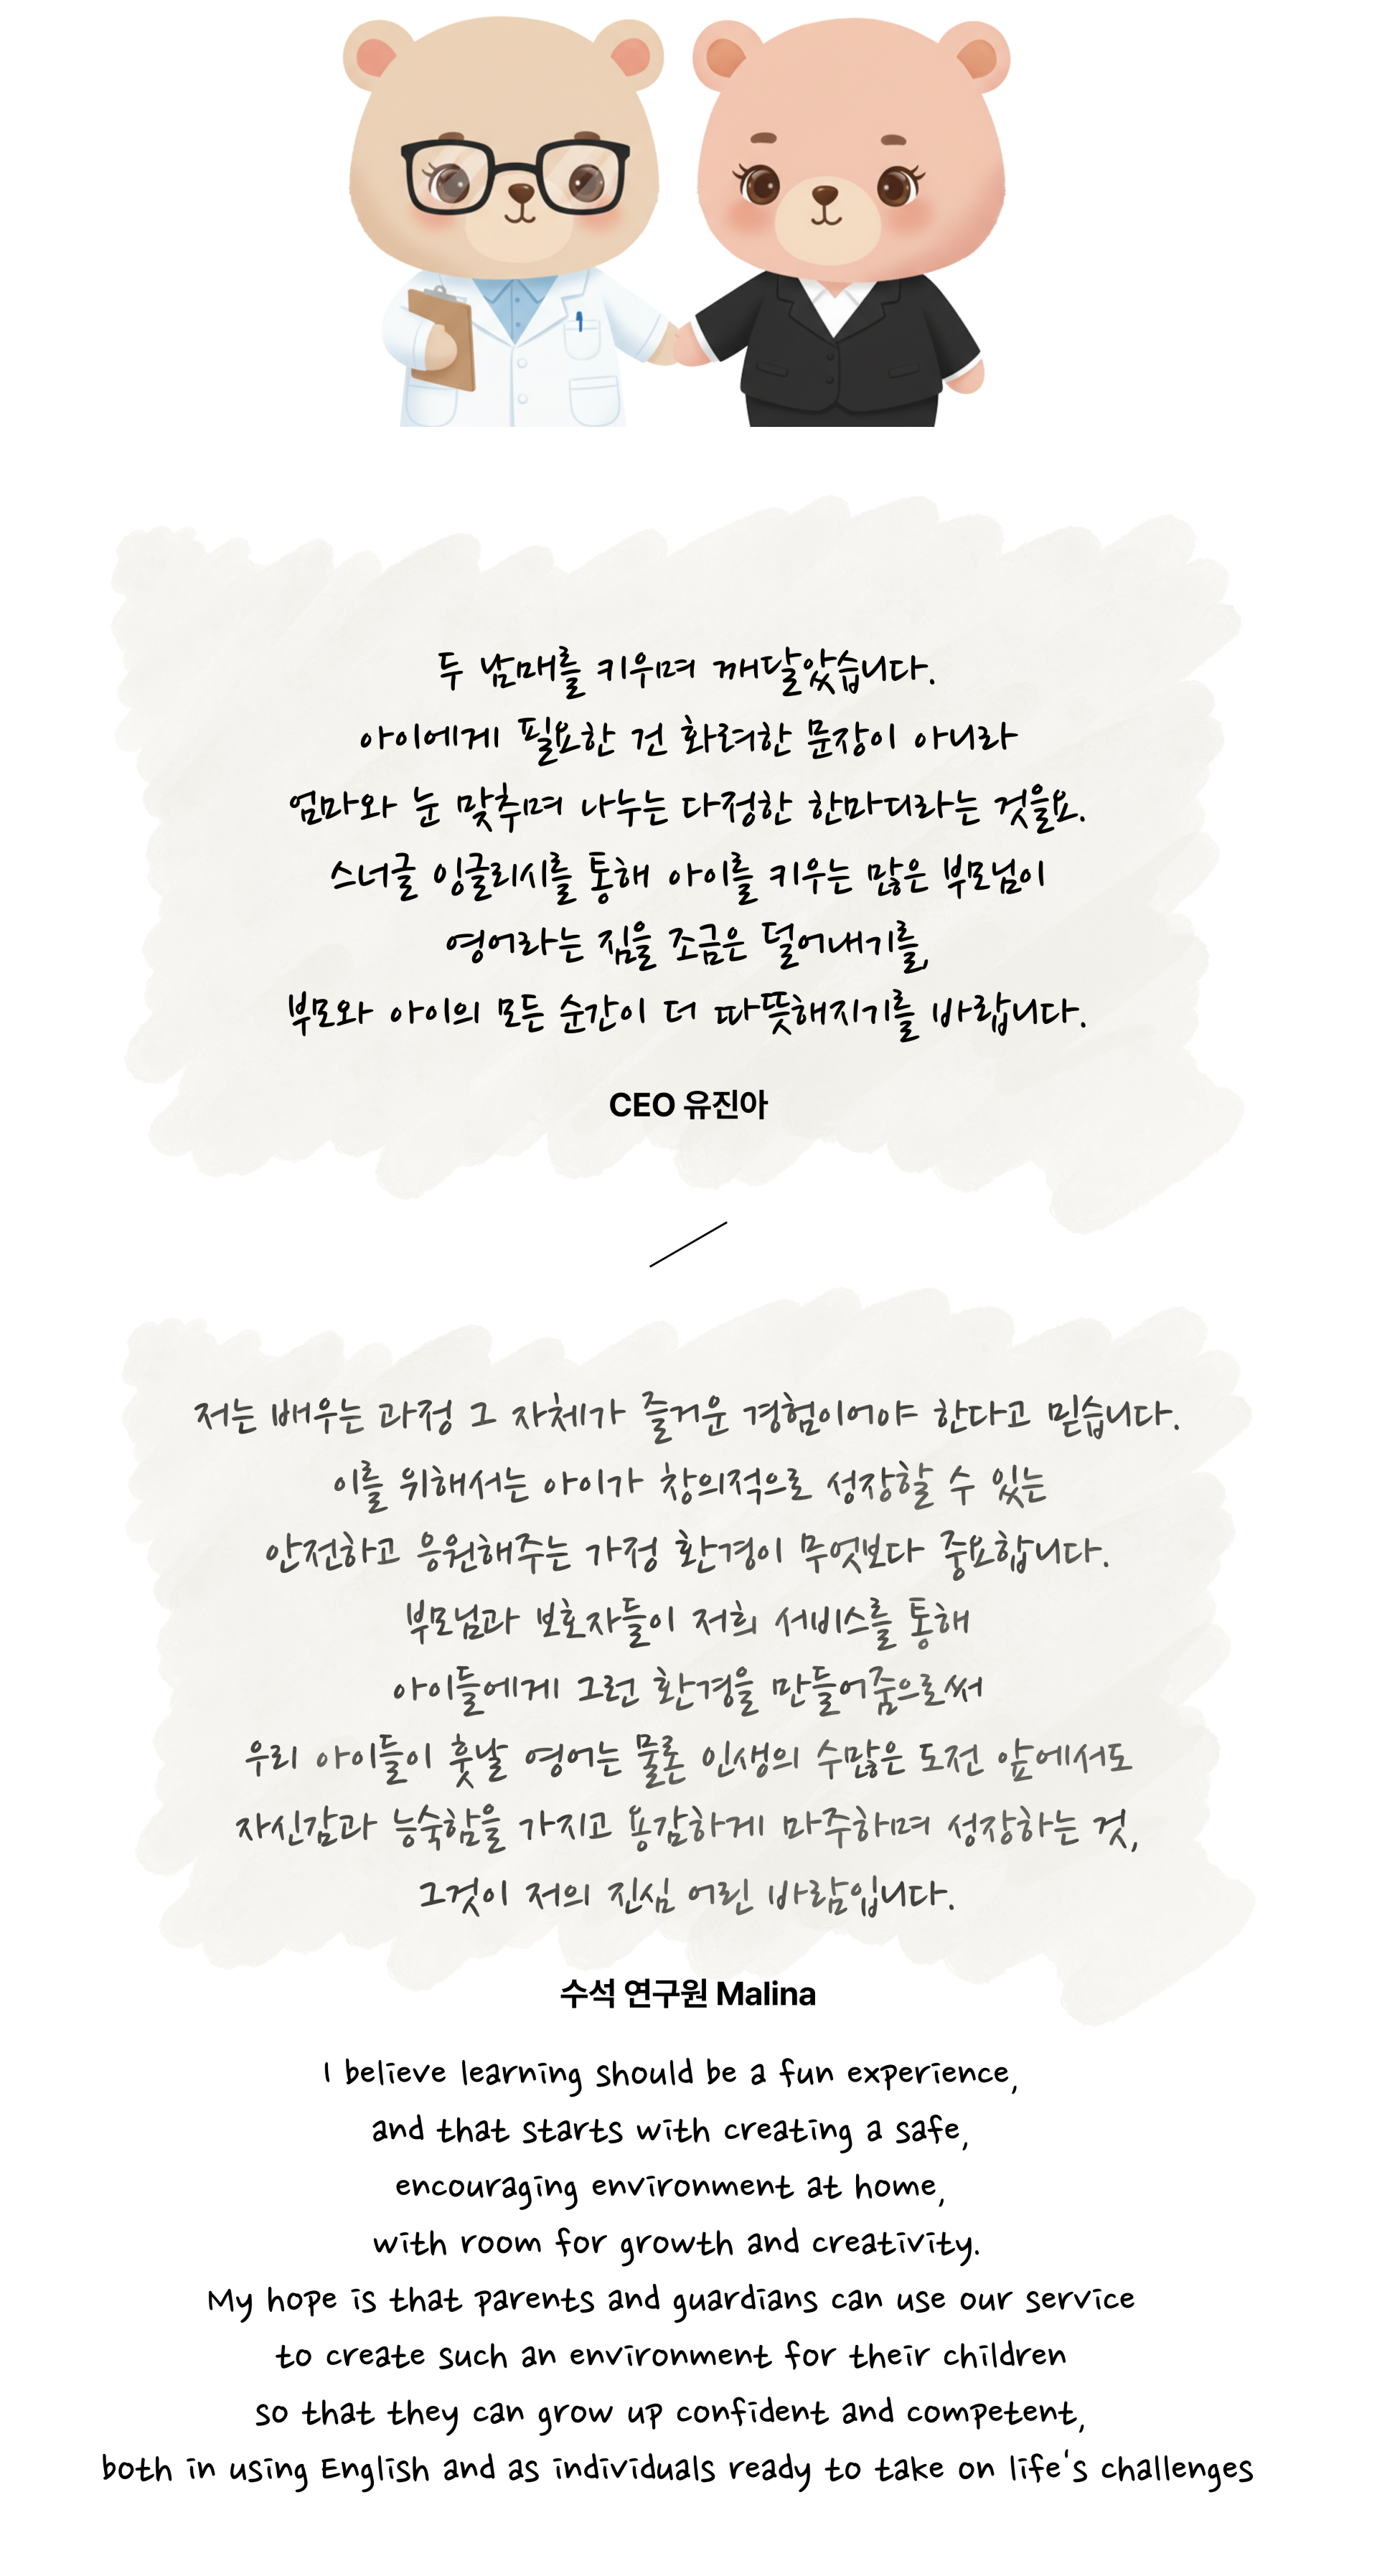 두 남매를 키우며 깨달았습니다.
아이에게 필요한 건 화려한 문장이 아니라
엄마와 눈 맞추며 나누는 다정한 한마디라는 것을요.
스너글 잉글리시를 통해 아이를 키우는 많은 부모님이
영어라는 짐을 조금은 덜어내기를,
부모와 아이의 모든 순간이 더 따뜻해지기를 바랍니다.
CEO 유진아
저는 배우는 과정 그 자체가 즐거운 경험이어야 한다고 믿습니다.
이를 위해서는 아이가 창의적으로 성장할 수 있는
안전하고 응원해주는 가정 환경이 무엇보다 중요합니다.
부모님과 보호자들이 저희 서비스를 통해
아이들에게 그런 환경을 만들어줌으로써
우리 아이들이 훗날 영어는 물론 인생의 수많은 도전 앞에서도
자신감과 능숙함을 가지고 용감하게 마주하며 성장하는 것,
그것이 저의 진심 어린 바람입니다.
수석 연구원 Malina
I believe learning should be a fun experience,
and that starts with creating a safe,
encouraging environment at home,
with room for growth and creativity.
My hope is that parents and guardians can use our service
to create such an environment for their children
so that they can grow up confident and competent,
both in using English and as individuals ready to take on life's challenges